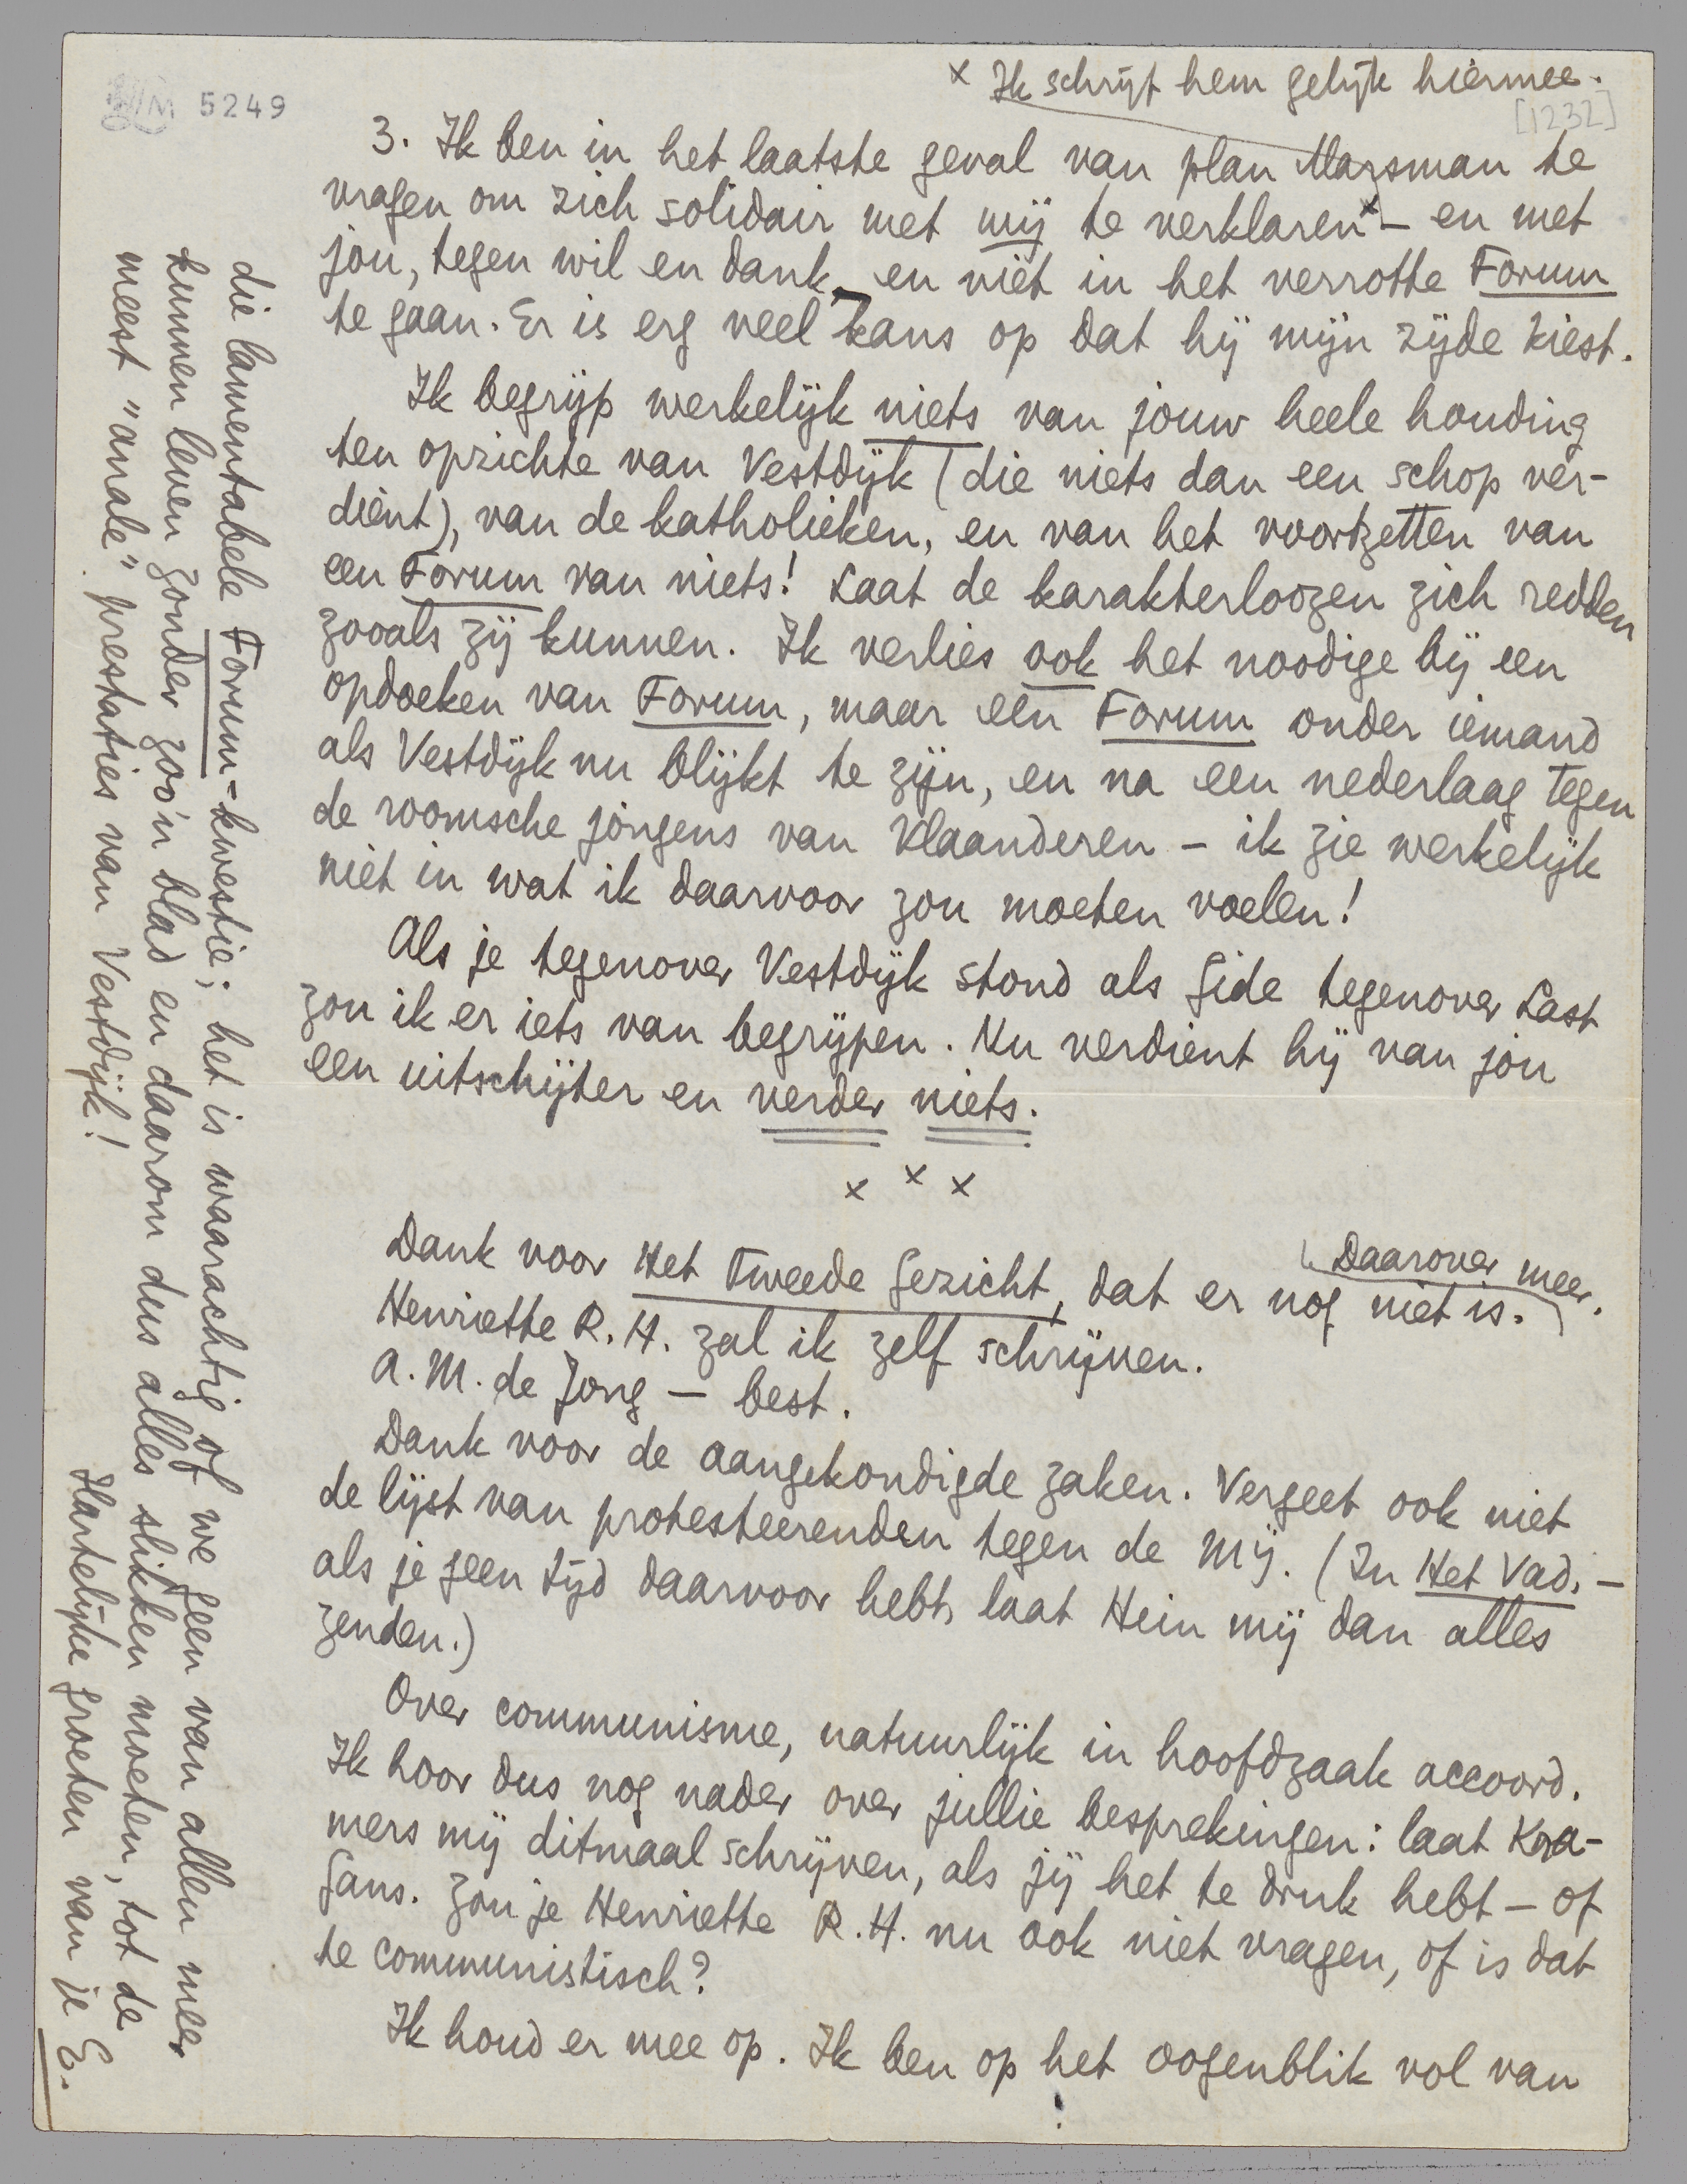 x Ik schrijf hem gelijk hiermee.
[1232]
5249
3. Ik ben in het laatste geval van plan Marsman te
vragen om zich solidair met mij te verklaren x – en met
jou, tegen wil en dank – en niet in het verrotte Forum
te gaan. Er is erg veel kans op dat hij mijn zijde kiest.
Ik begrijp werkelijk niets van jouw heele houding
ten opzichte van Vestdijk (die niets dan een schop ver-
dient), van de katholieken, en van het voortzetten van
een Forum van niets! Laat de karakterloozen zich redden
zooals zij kunnen. Ik verlies ook het noodige bij een
opdoeken van Forum, maar een Forum onder iemand
als Vestdijk nu blijkt te zijn, en na een nederlaag tegen
de roomsche jongens van Vlaanderen – ik zie werkelijk
niet in wat ik daarvoor zou moeten voelen!
Als je tegenover Vestdijk stond als Gide tegenover Last
zou ik er iets van begrijpen. Nu verdient hij van jou
een uitschijter en verder niets.
x x x
Daarover meer.
Dank voor Het Tweede Gezicht, dat er nog niet is.
Henriette R. H. zal ik zelf schrijven.
A. M. de Jong – best.
Dank voor de aangekondigde zaken. Vergeet ook niet
de lijst van protesteerenden tegen de Mij. (In Het Vad. –
als je geen tijd daarvoor hebt, laat Hein mij dan alles
zenden.)
Over communisme, natuurlijk in hoofdzaak accoord.
Ik hoor dus nog nader over jullie besprekingen: laat Kra-
mers mij ditmaal schrijven, als jij het te druk hebt – of
Gans. Zou je Henriette R. H. nu ook niet vragen, of is dat
te communistisch?
Ik houd er mee op. Ik ben op het oogenblik vol van
die lamentabele Forum-kwestie; het is waarachtig of we geen van allen meer
kunnen leven zonder zoo'n blad en daarom dus alles slikken moeten, tot de
meest "anale" prestaties van Vestdijk!
Hartelijke groeten van je E.